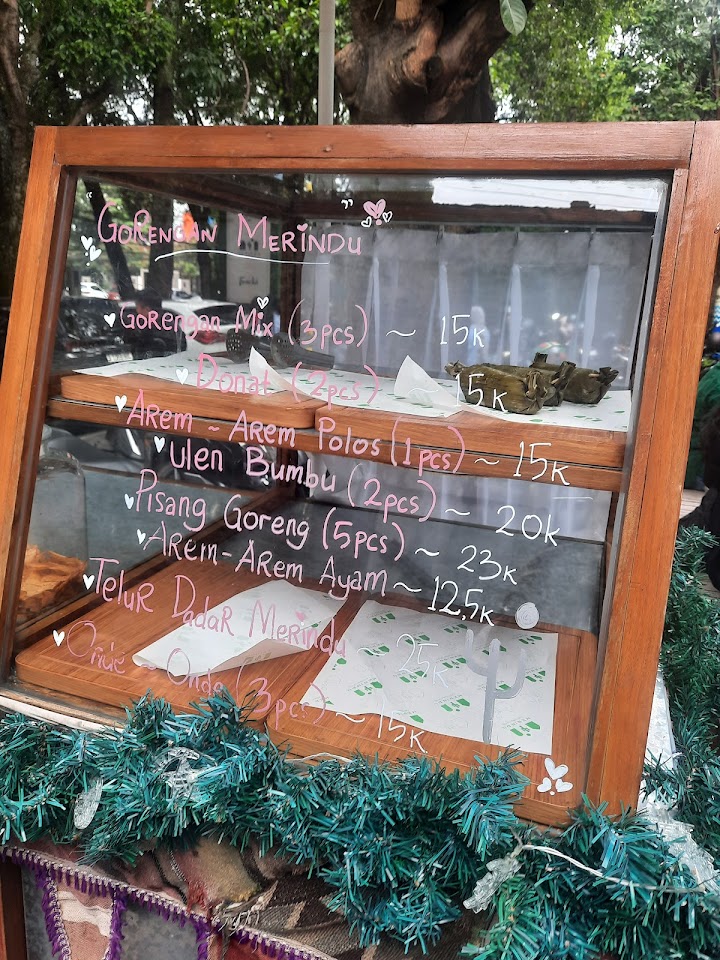 " GORENGAN MERINDU "
Gorengan Mix (3pcs) ~ 15K
Donat (2pcs) ~ 15K
Arem ~ Arem Polos (1pcs) ~ 15K
Ulen Bumbu (2pcs) ~ 20K
Pisang Goreng (5pcs) ~ 23K
Arem-Arem Ayam ~ 12,5K
Telur Dadar Merindu ~ 25K
Onde ~ Onde (3pcs) ~ 15K